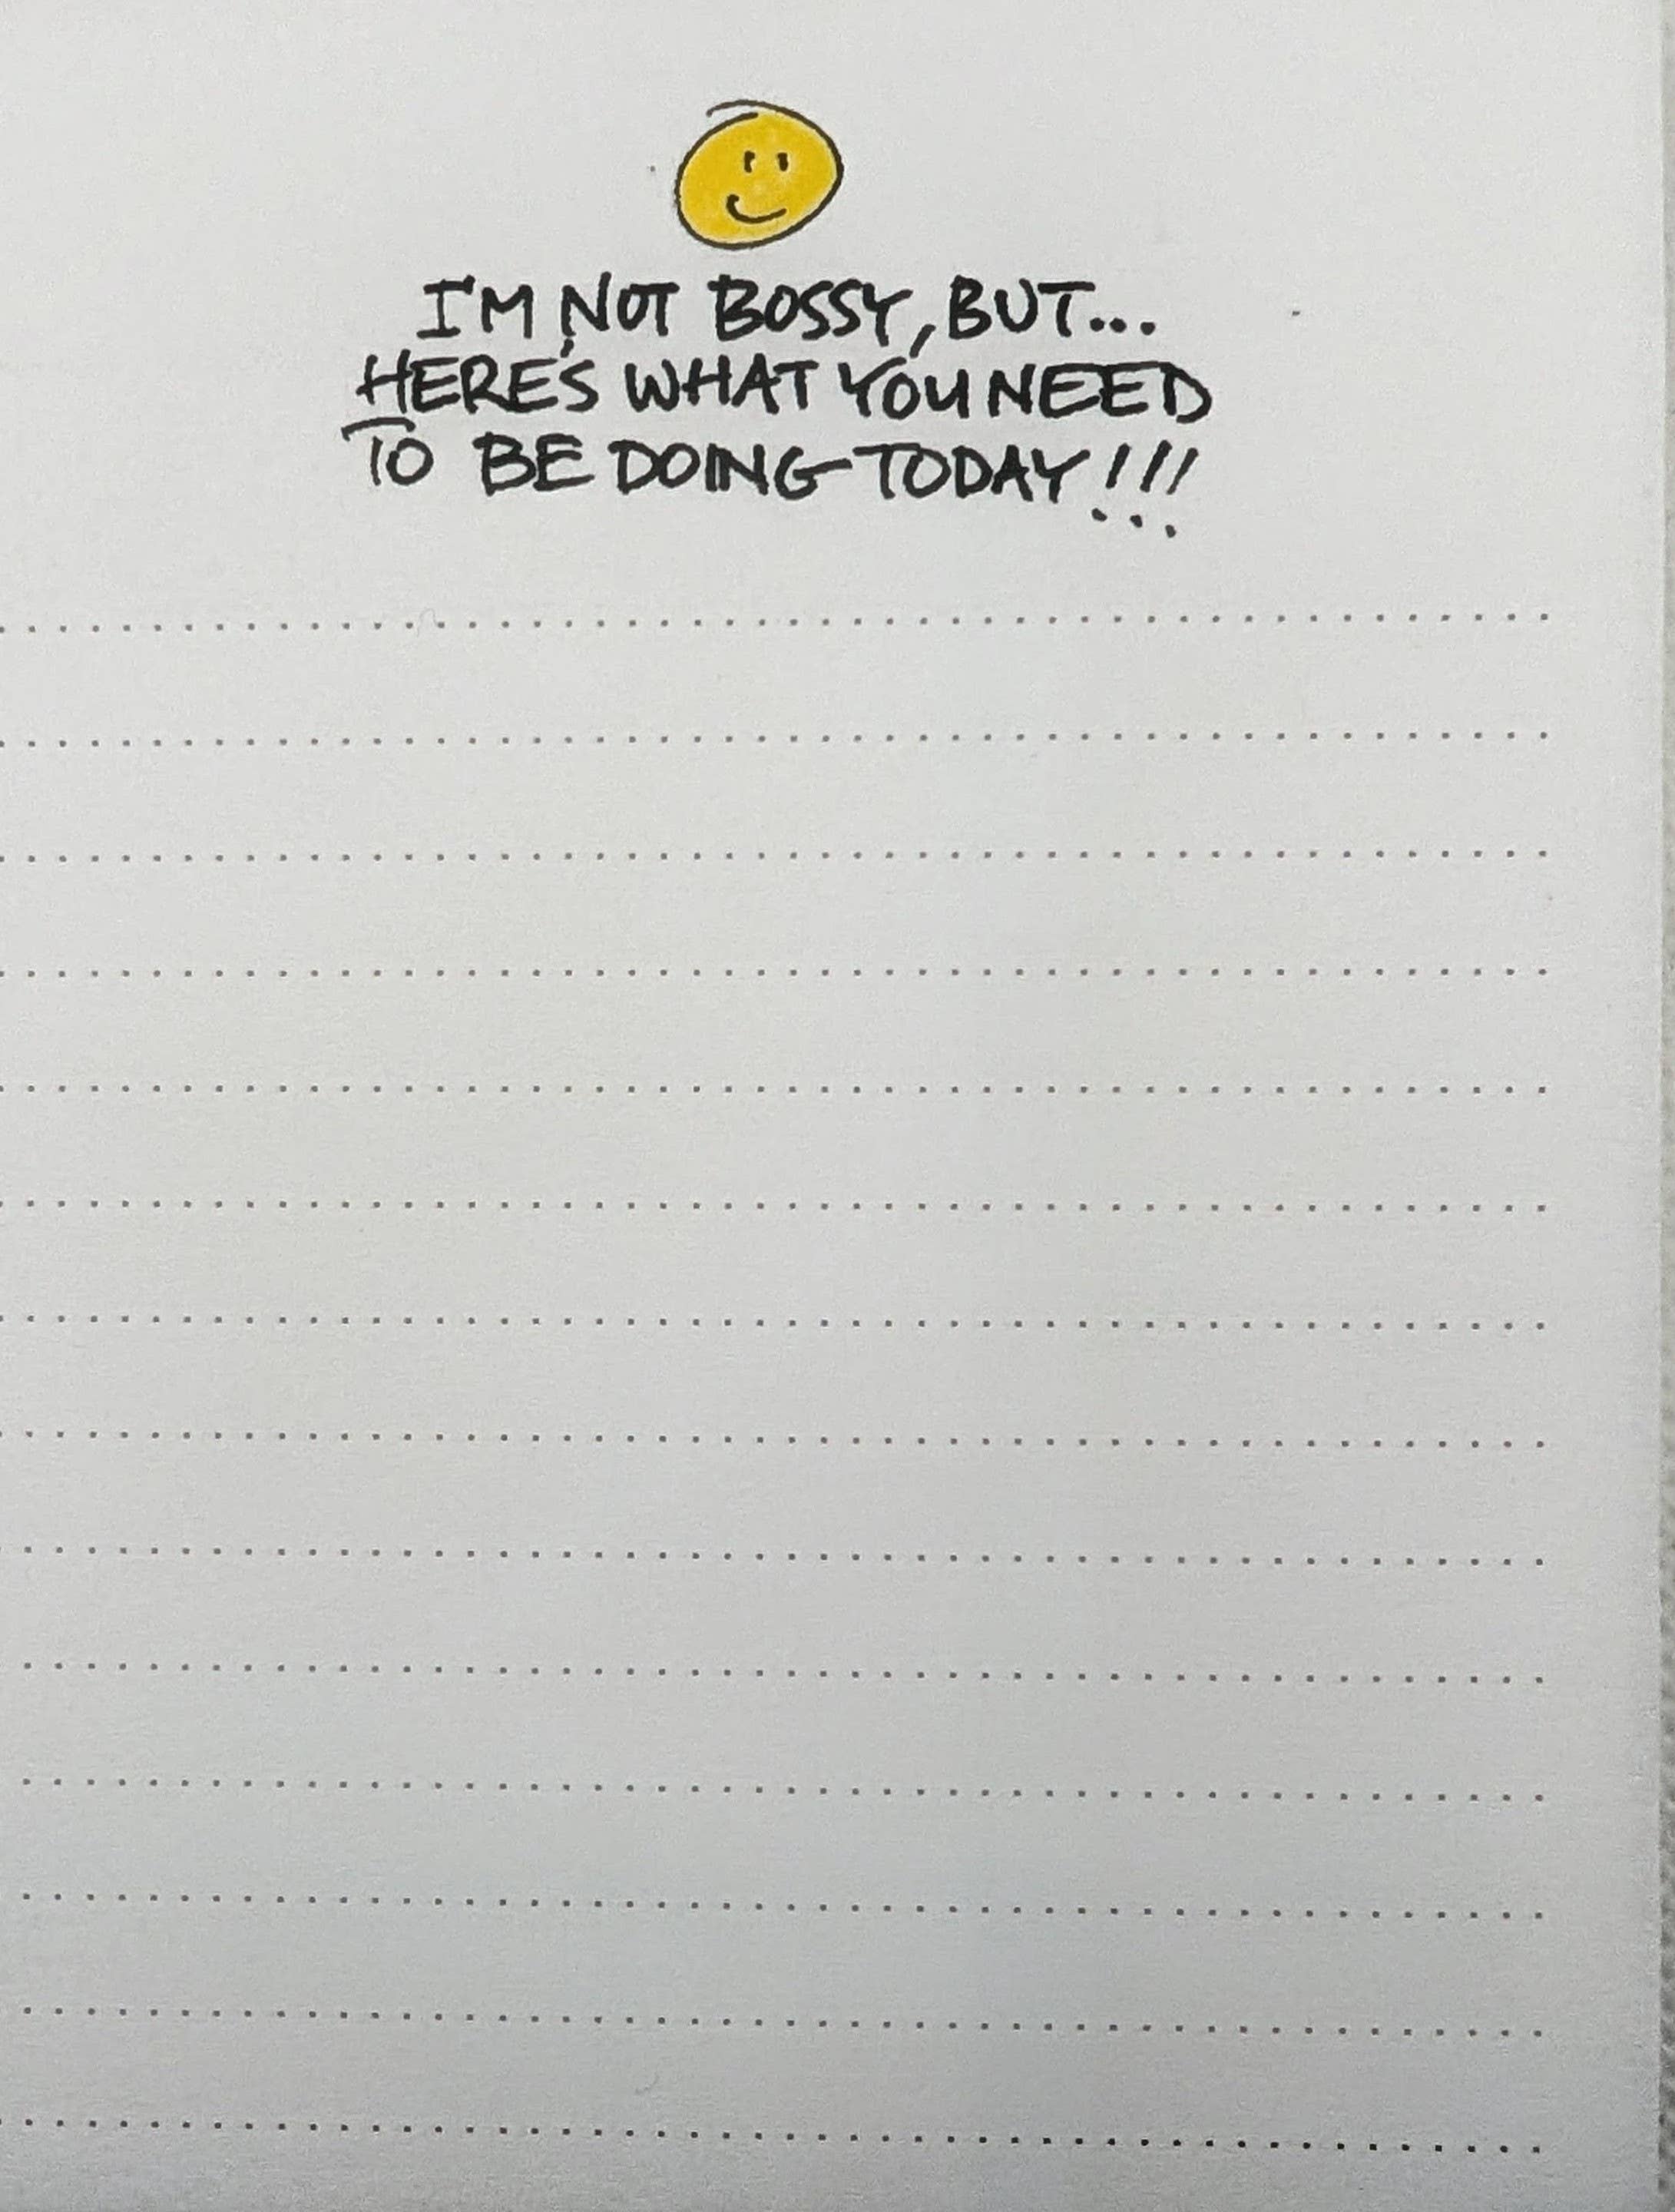 I'M NOT BOSSY, BUT...
HERE'S WHAT YOU NEED
TO BE DOING TODAY!!!